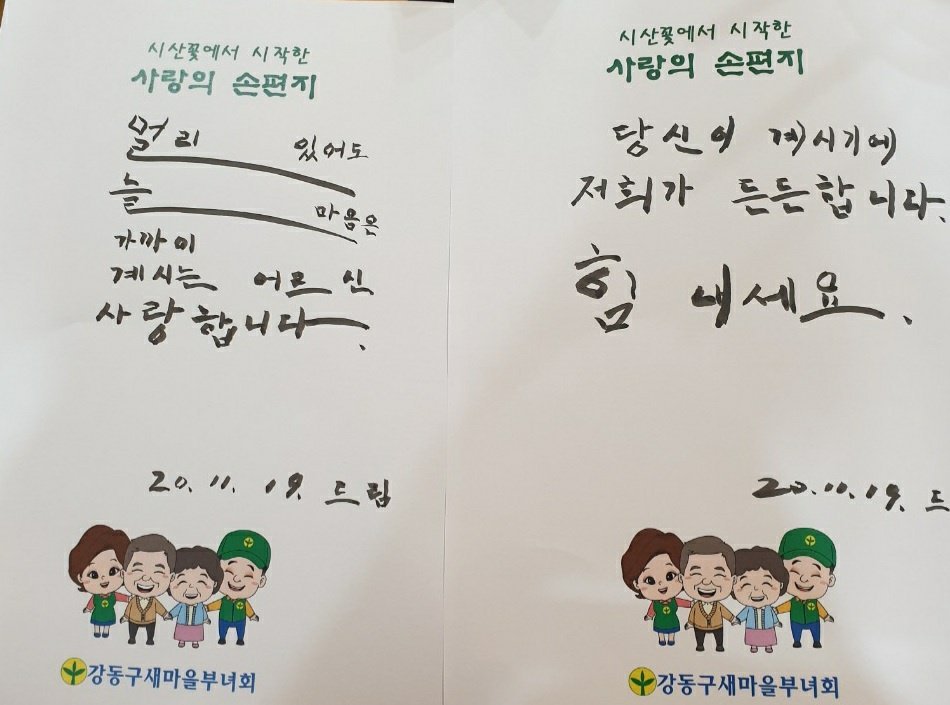 시산꽃에서 시작한
사랑의 손편지
멀리 있어도
늘 마음은
가까이
계시는 어르신
사랑합니다.
20. 11. 19. 드림
강동구새마을부녀회
시산꽃에서 시작한
사랑의 손편지
당신이 계시기에
저희가 든든합니다.
힘 내세요.
20. 11. 19. 드
강동구새마을부녀회